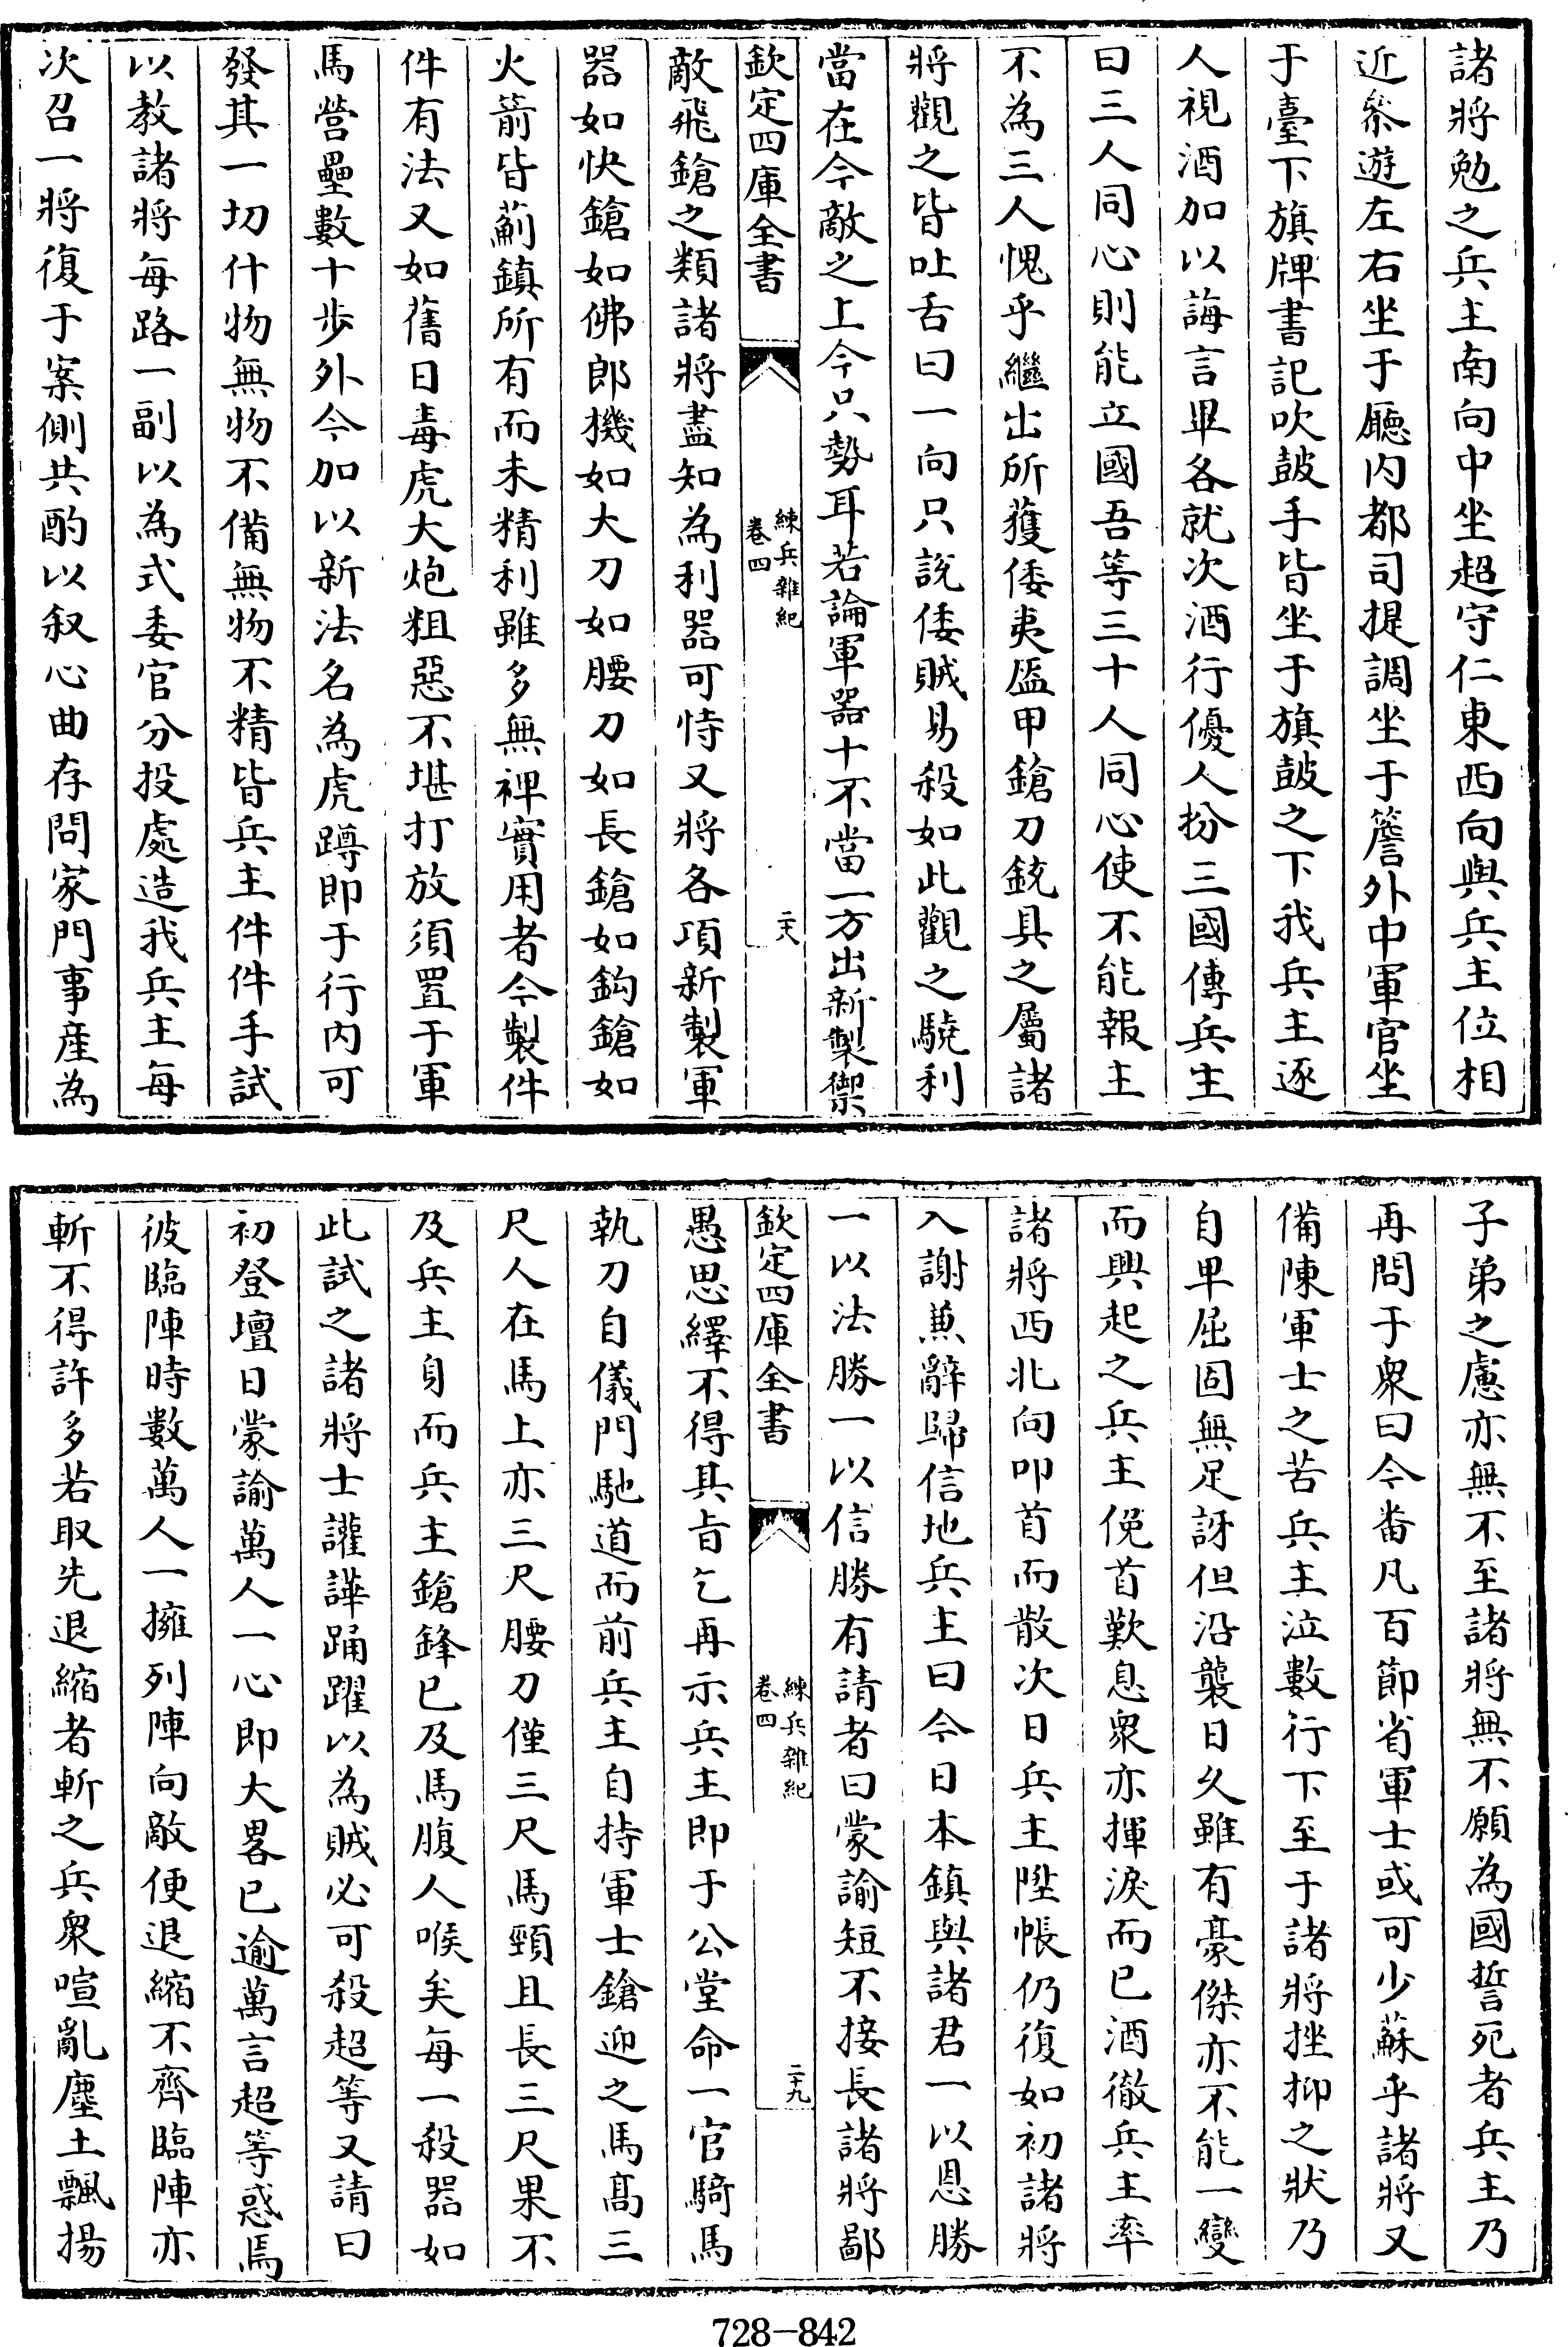 諸將勉之兵主南向中坐超守仁東西向與兵主位相
近叅遊左右坐于廳内都司提調坐于簷外中軍官坐
于臺下旗牌書記吹鼓手皆坐于旗鼓之下我兵主逐
人視酒加以誨言畢各就次酒行優人扮三國傳兵主
曰三人同心則能立國吾等三十人同心使不能報主
不為三人愧乎繼出所獲倭夷盔甲鎗刀銃具之屬諸
將觀之皆吐舌曰一向只説倭賊易殺如此觀之驍利
當在今敵之上今只勢耳若論軍器十不當一方出新製禦
欽定四庫全書
練兵雜紀
卷四
二六
敵飛鎗之類諸將盡知為利器可恃又將各項新製軍
器如快鎗如佛郎機如大刀如腰刀如長鎗如鈎鎗如
火箭皆薊鎮所有而未精利雖多無裨實用者今製件
件有法又如舊日毒虎大炮粗惡不堪打放須置于軍
馬營壘數十步外今加以新法名為虎蹲即于行内可
發其一切什物無物不備無物不精皆兵主件件手試
以教諸將每路一副以為式委官分投處造我兵主每
次召一將復于案側共酌以叙心曲存問家門事産為
子弟之慮亦無不至諸將無不願為國誓死者兵主乃
再問于衆曰今畨凡百節省軍士或可少蘇乎諸將又
備陳軍士之苦兵主泣數行下至于諸將挫抑之狀乃
自卑屈固無足訝但沿襲日久雖有豪傑亦不能一變
而興起之兵主俛首歎息衆亦揮淚而已酒徹兵主率
諸將西北向叩首而散次日兵主陞帳仍復如初諸將
入謝兼辭歸信地兵主曰今日本鎮與諸君一以恩勝
一以法勝一以信勝有請者曰蒙諭短不接長諸將鄙
欽定四庫全書
練兵雜紀
卷四
二十九
愚思繹不得其㫖乞再示兵主即于公堂命一官騎馬
執刀自儀門馳道而前兵主自持軍士鎗迎之馬髙三
尺人在馬上亦三尺腰刀僅三尺馬頸且長三尺果不
及兵主身而兵主鎗鋒已及馬腹人喉矣每一殺器如
此試之諸將士讙譁踊躍以為賊必可殺超等又請曰
初登壇日蒙諭萬人一心即大畧已逾萬言超等惑焉
彼臨陣時數萬人一擁列陣向敵便退縮不齊臨陣亦
斬不得許多若取先退縮者斬之兵衆喧亂塵土飄揚
728-842